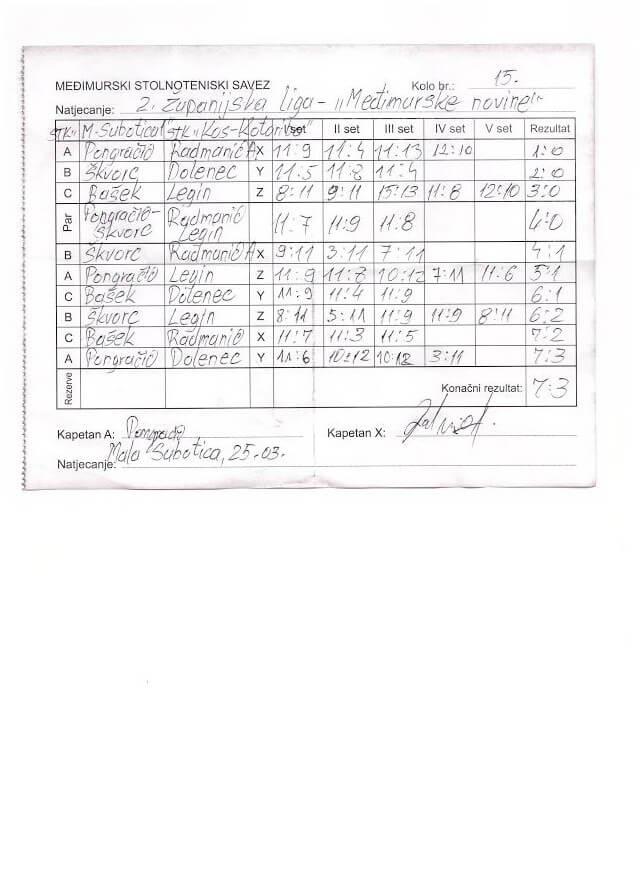 MEĐIMURSKI STOLNOTENISKI SAVEZ Kolo br.: 15.
Natjecanje: 2. Županijska liga - "Međimurske novine"
STK "M. Subotica" STK "Kos-Kotoriba" I set II set III set IV set V set Rezultat
A Pongračić Radmanić A X 11:9 11:4 11:13 12:10 1:0
B Škvorc Dolenec Y 11:5 11:8 11:4 2:0
C Bašek Legin Z 8:11 9:11 15:13 11:8 12:10 3:0
Par Pongračić-Škvorc Radmanić Legin 11:7 11:9 11:8 4:0
B Škvorc Radmanić A X 9:11 3:11 7:11 4:1
A Pongračić Legin Z 11:9 11:8 10:12 7:11 11:6 5:1
C Bašek Dolenec Y 11:9 11:4 11:9 6:1
B Škvorc Legin Z 8:11 5:11 11:9 11:9 8:11 6:2
C Bašek Radmanić X 11:7 11:3 11:5 7:2
A Pongračić Dolenec Y 11:6 10:12 10:12 3:11 7:3
Rezerve Konačni rezultat: 7:3
Kapetan A: Kapetan X:
Mala Subotica, 25.03.
Natjecanje: